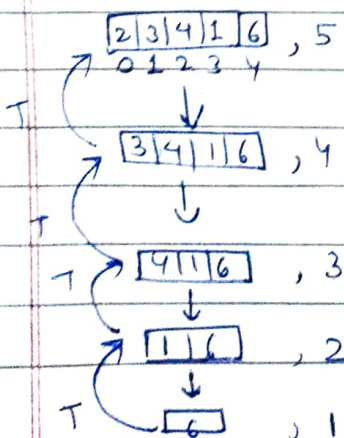 2 3 4 1 6 , 5
0 1 2 3 4
T
3 4 1 6 , 4
T
4 1 6 , 3
T
1 6 , 2
T
6 , 1